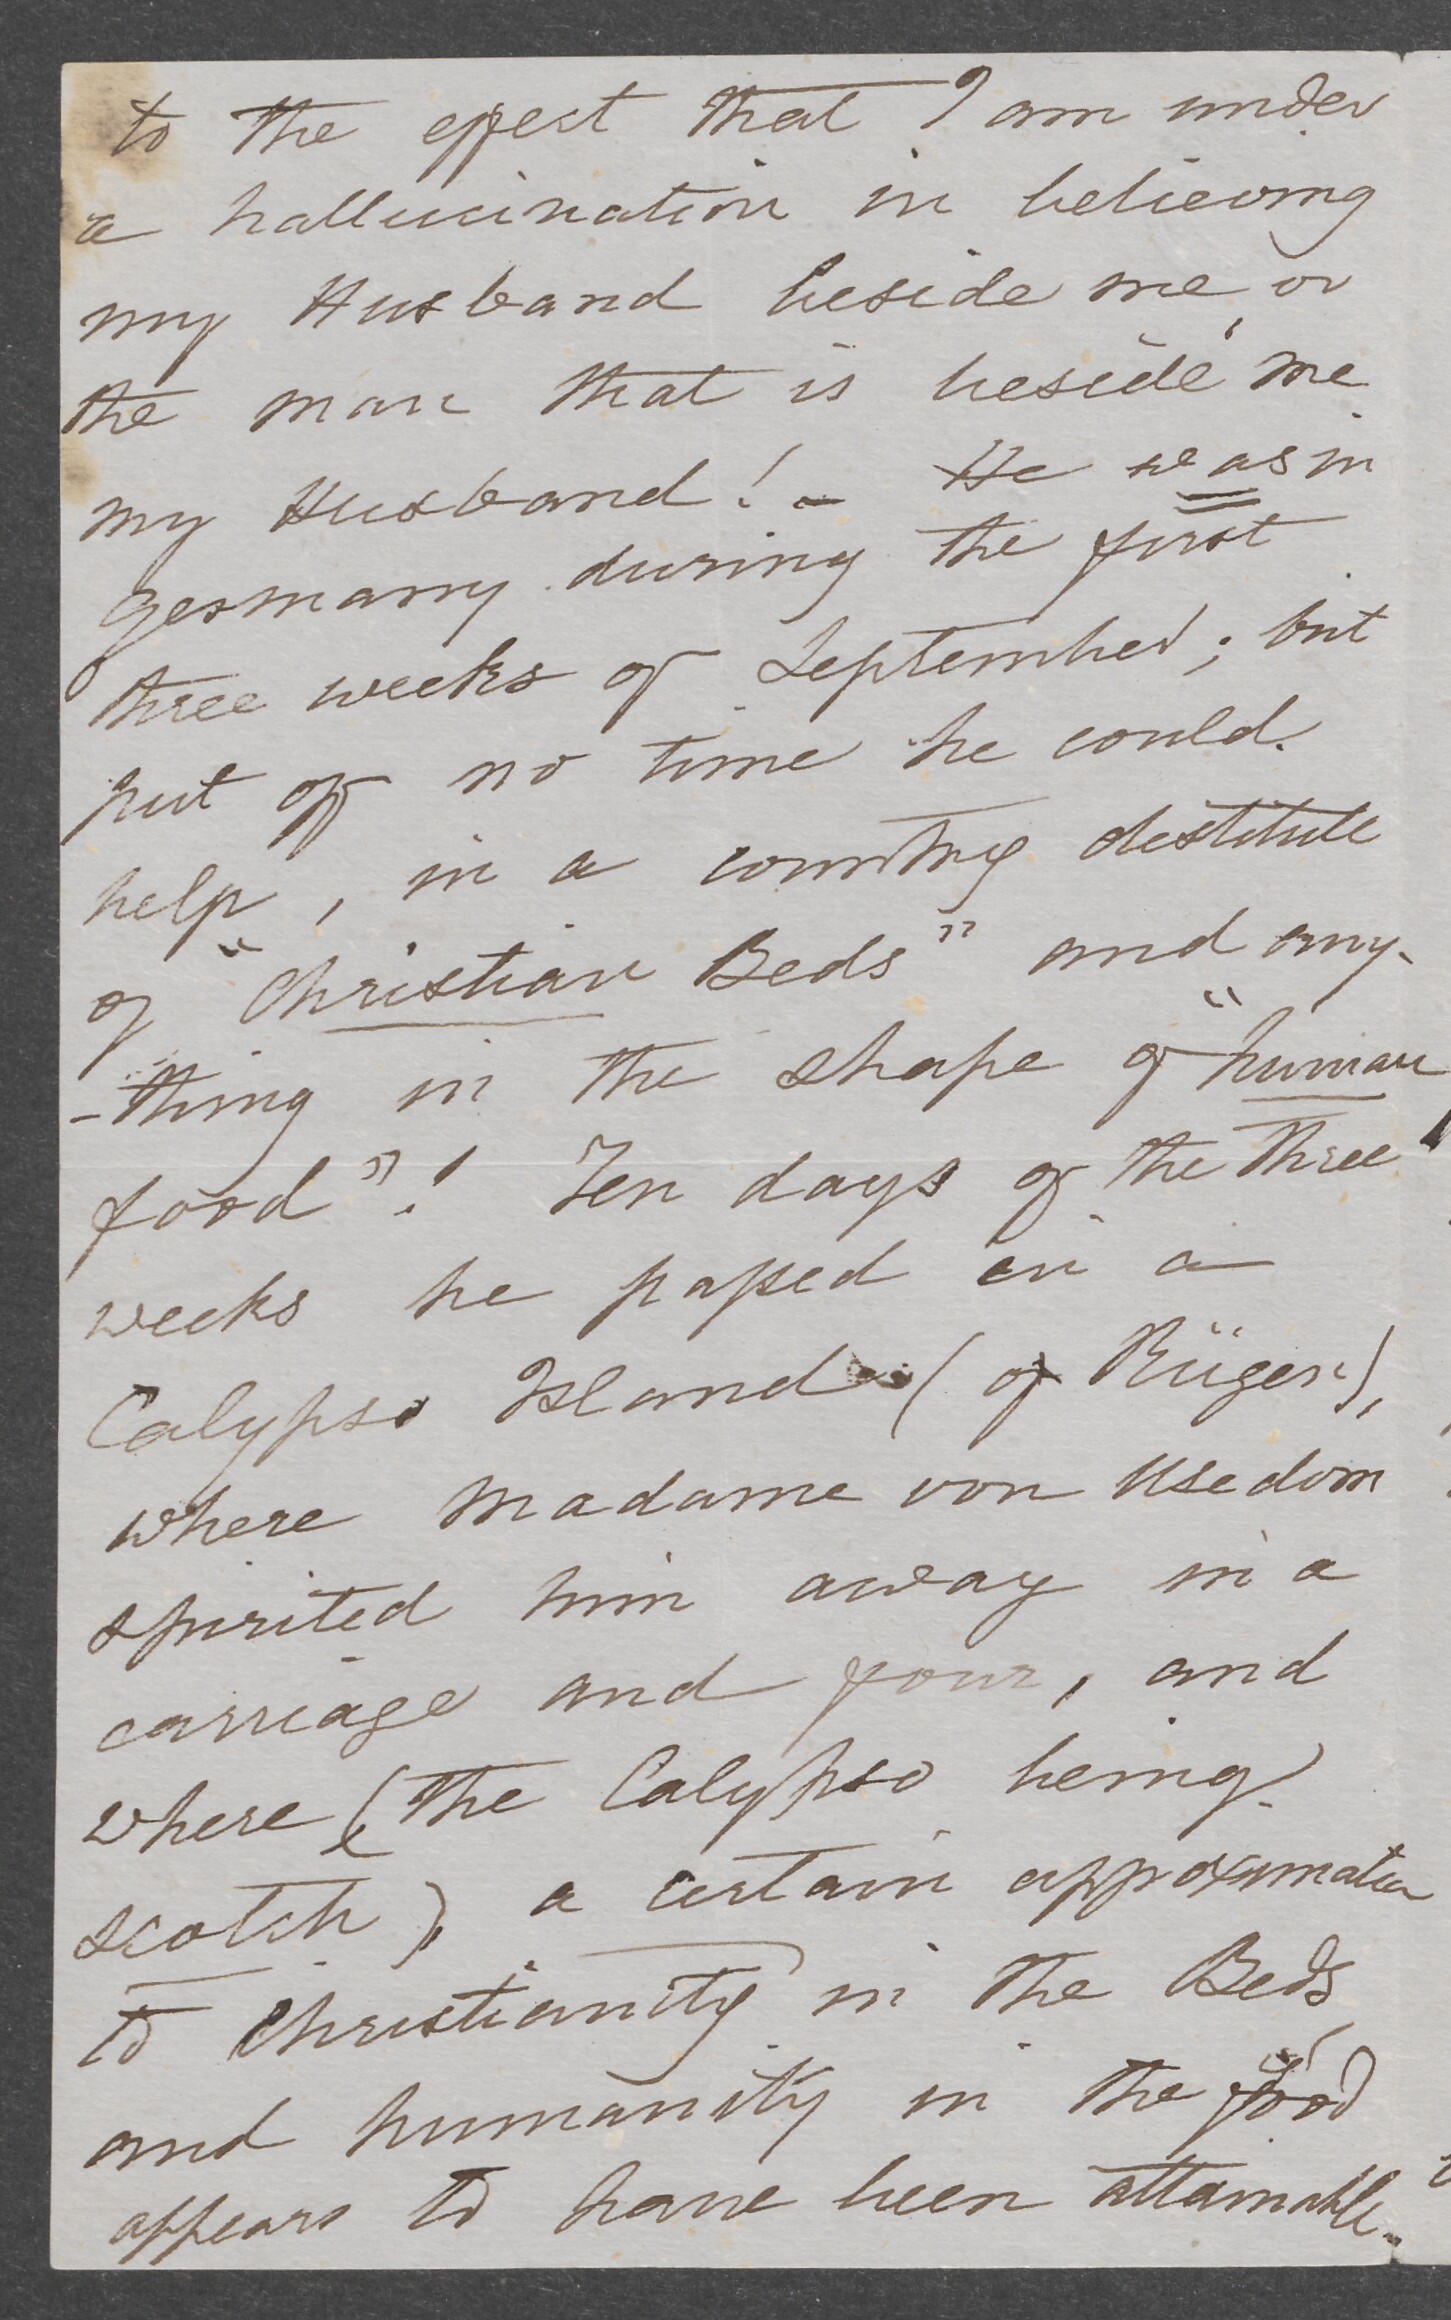 to the effect that I am under
a hallucination in believing
my Husband beside me, or
the man that is beside me
my Husband! – He was in
Germany during the first
three weeks of September; but
put off no time he could
help, in a country destitute
of "Christian Beds" and any-
-thing in the shape of "human
food"! Ten days of the three
weeks he passed in a
Calypso Island (of Rügen),
where Madame von Usedom
spirited him away in a
carriage and four, and
where (the Calypso being
scotch), a certain approximation
to Christianity in the Beds
and humanity in the food
appears to have been attainable.